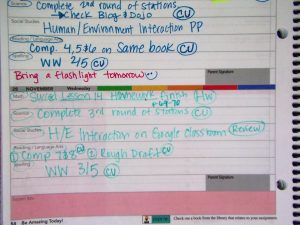 Science
Complete 2nd round of stations (CU)
→ Check Blog & Dojo (CU)
Social Studies
Human/Environment Interaction PP
Reading / Language Arts
Comp. 4, 5 & 6 on same book (CU)
Spelling
WW 2/5 (CU)
Bring a flashlight tomorrow
Parent Signature
November Wednesday
Math
Social Lesson 14 Homework finish (HW)
Science
Complete 3rd round of stations (CU)
Social Studies
H/E Interaction on Google Classroom (Review)
Reading / Language Arts
① Comp 7&8 (CU) ② Rough Draft (CU)
Spelling
WW 3/5 (CU)
Parent Signature
54 Be Amazing Today!
Check out a book from the library that relates to your assignment